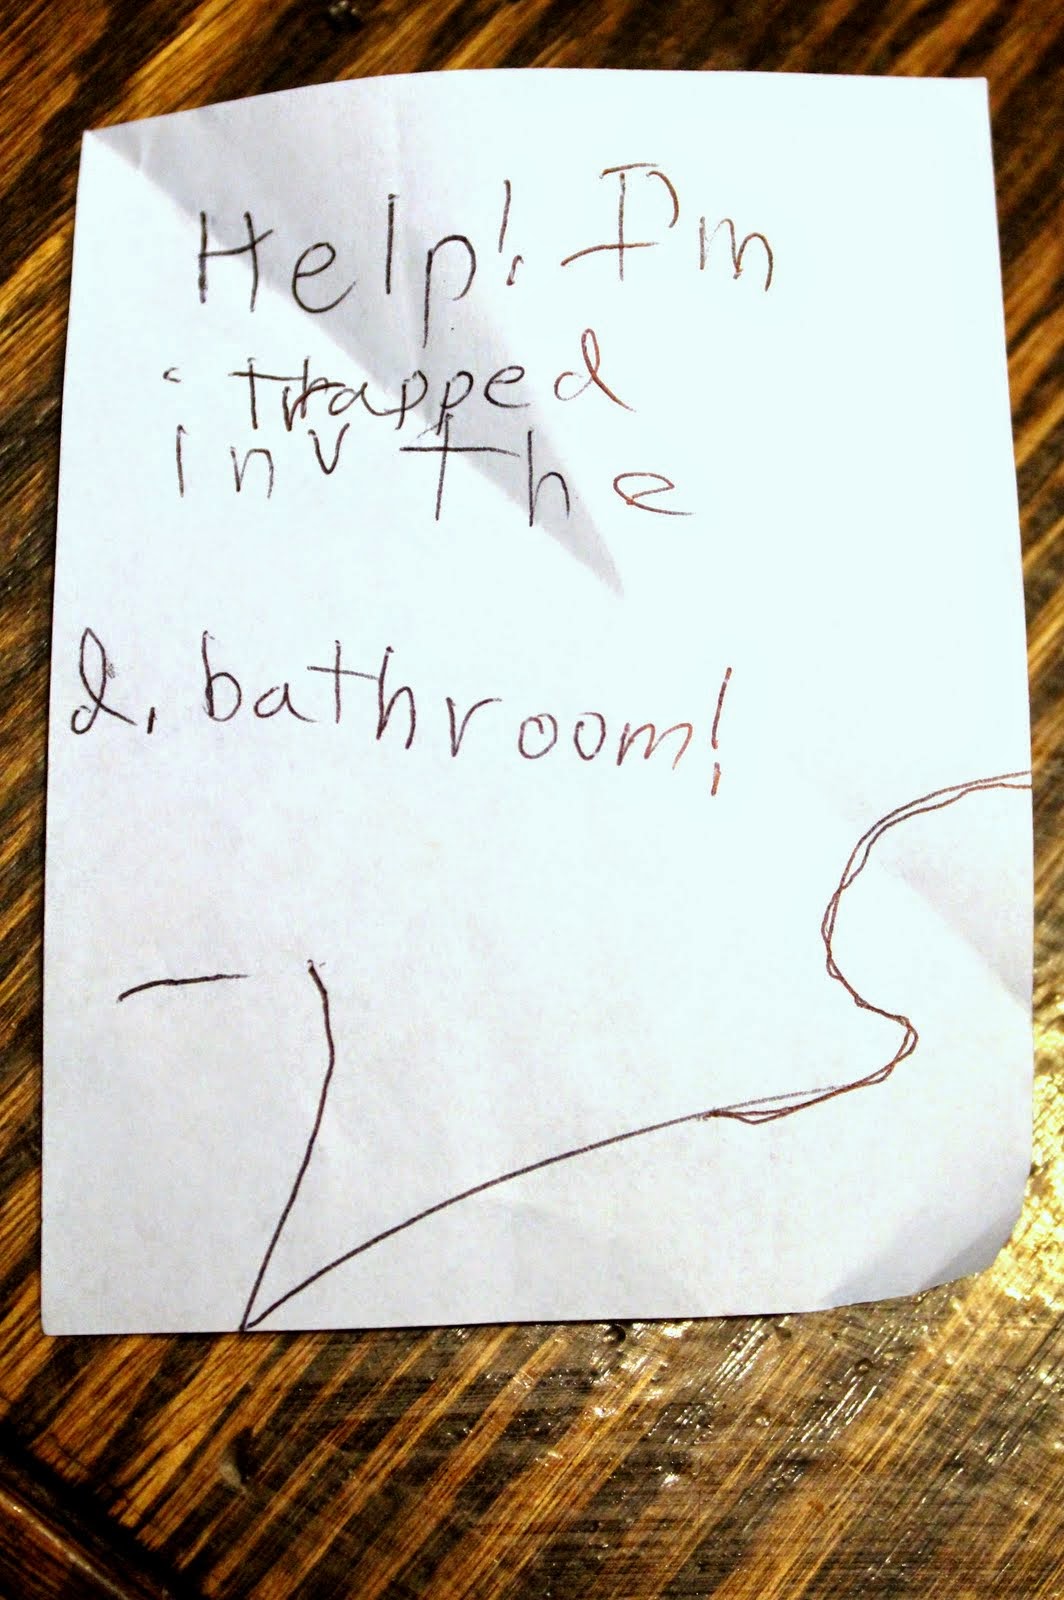 Help! I'm
trapped
in the
d, bathroom!